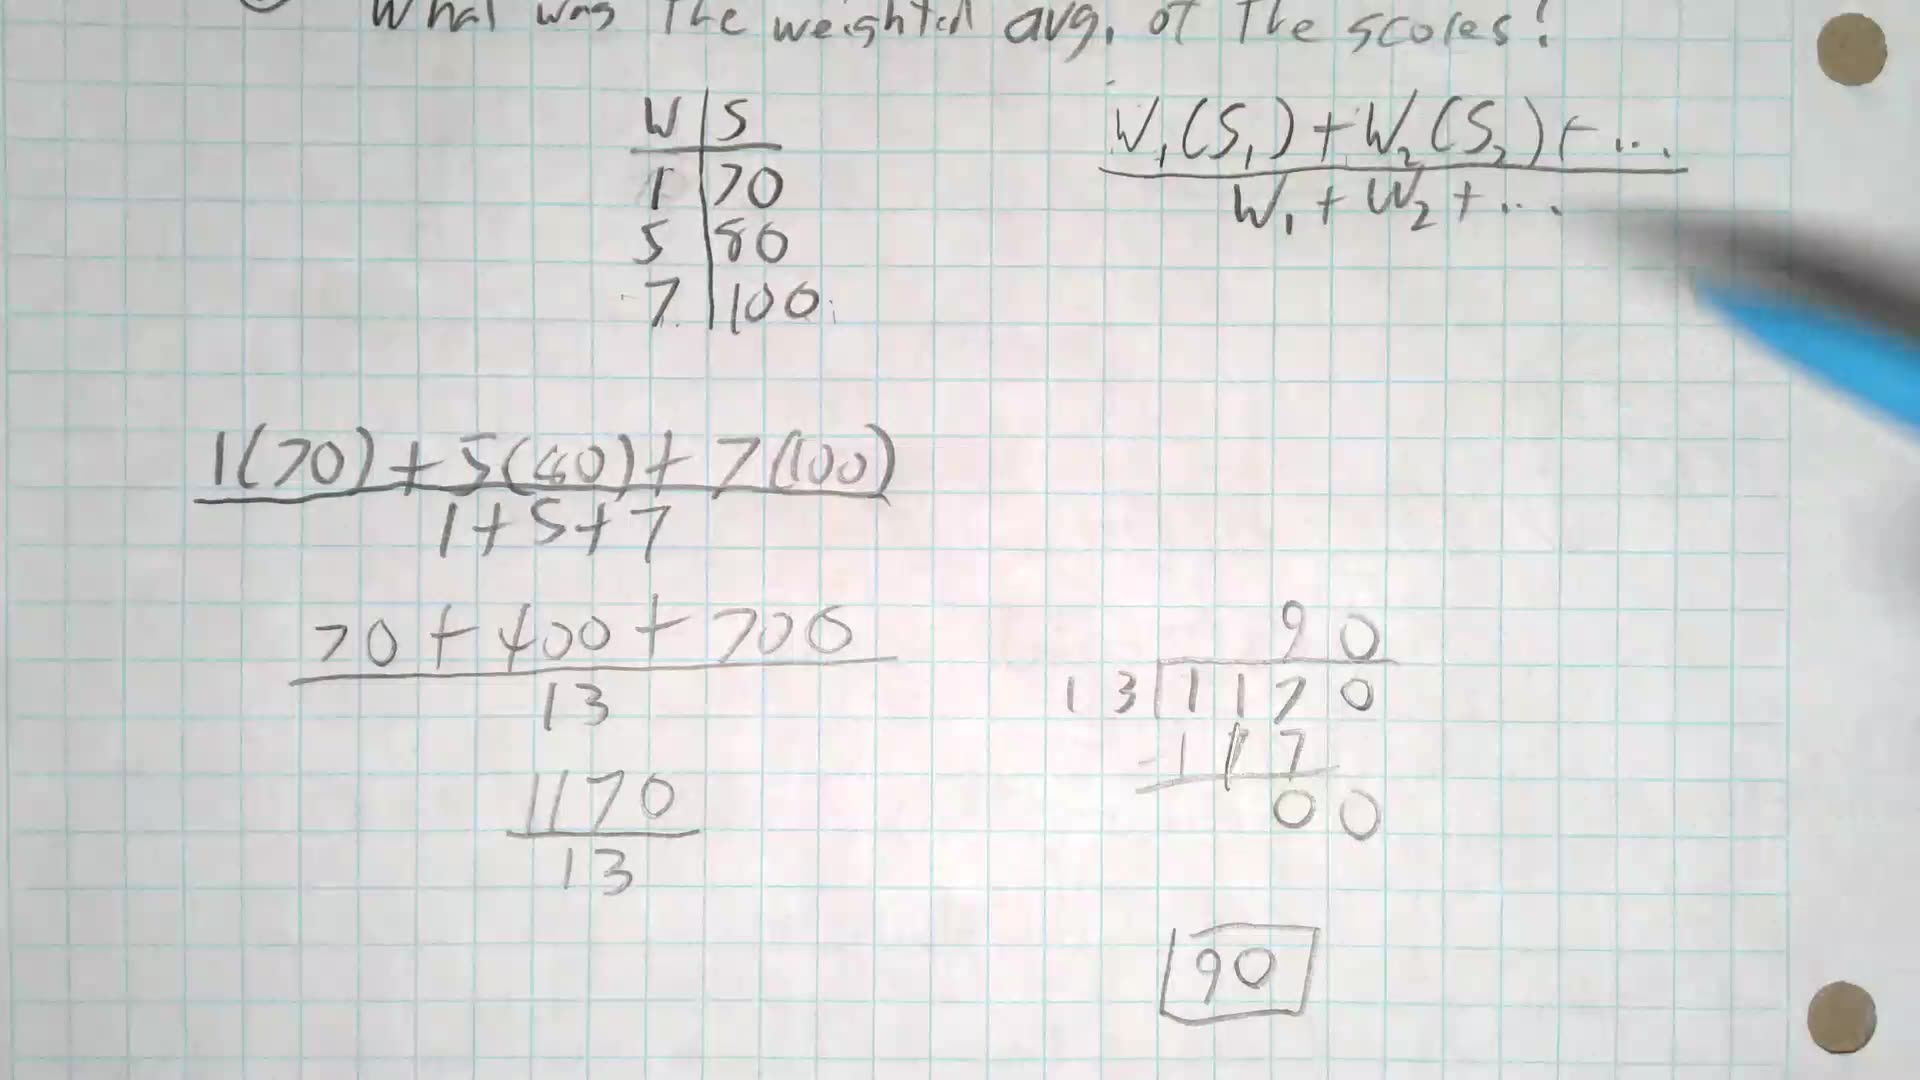 What was the weighted avg. of the scores?
W | S
1 | 70
5 | 80
7 | 100
W₁(S₁)+W₂(S₂)+...
W₁+W₂+...
1(70)+5(80)+7(100)
1+5+7
70+400+700
13
1170
13
90
13|1170
-117
00
90